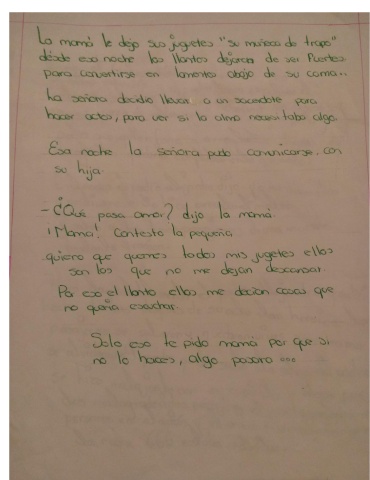 La mamá le dejo sus juguetes "su muñeca de trapo"
desde esa noche los llantos dejaron de ser fuertes
para convertirse en lamentos abajo de su cama...
La señora decidio llevar a un sacerdote para
hacer actos, para ver si la alma necesitaba algo.
Esa noche la señora pudo comunicarse, con
su hija.
- ¿Qué pasa amor? dijo la mamá.
¡Mama! Contesto la pequeña
quiero que quemes todos mis jugetes ellos
son los que no me dejan descansar.
Por eso el llanto ellos me decian cosas que
no queria escuchar.
Solo eso te pido mamá por que si
no lo haces, algo pasara ...